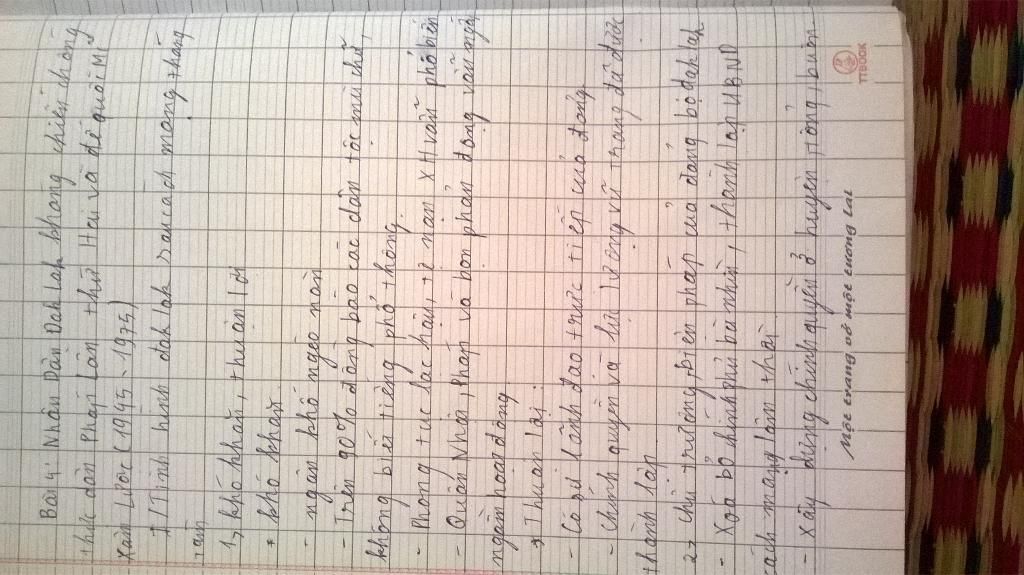 Bài 4: Nhân Dân Dak lak kháng chiến chống
thực dân Pháp Lần thứ Hai và đế quốc Mĩ
Xâm Lược (1945 - 1975)
I/ Tình hình dak lak sau cách mạng tháng
tám
1, khó khăn, thuận lợi
* khó khăn
- ngân khố nghèo nàn
- Trên 90% đồng bào các dân tộc mù chữ,
không biết tiếng phổ thông.
- Phong tục lạc hậu, tệ nạn X Hưởn phổ biến
- Quân Nhật, Pháp và bọn phản động vẫn ngấm
ngầm hoạt động
* Thuận lợi
- Có sự lãnh đạo trực tiếp của đảng
- chính quyền và lực lượng vũ trang đã được
thành lập
2, chủ trương, biện pháp của đảng bộ dak lak
- Xoá bỏ chính phủ bù nhìn, thành lập UBND
cách mạng lâm thời
- Xây dựng chính quyền ở huyện, tổng, buôn
Một trang vở một tương lai
TTBOOK